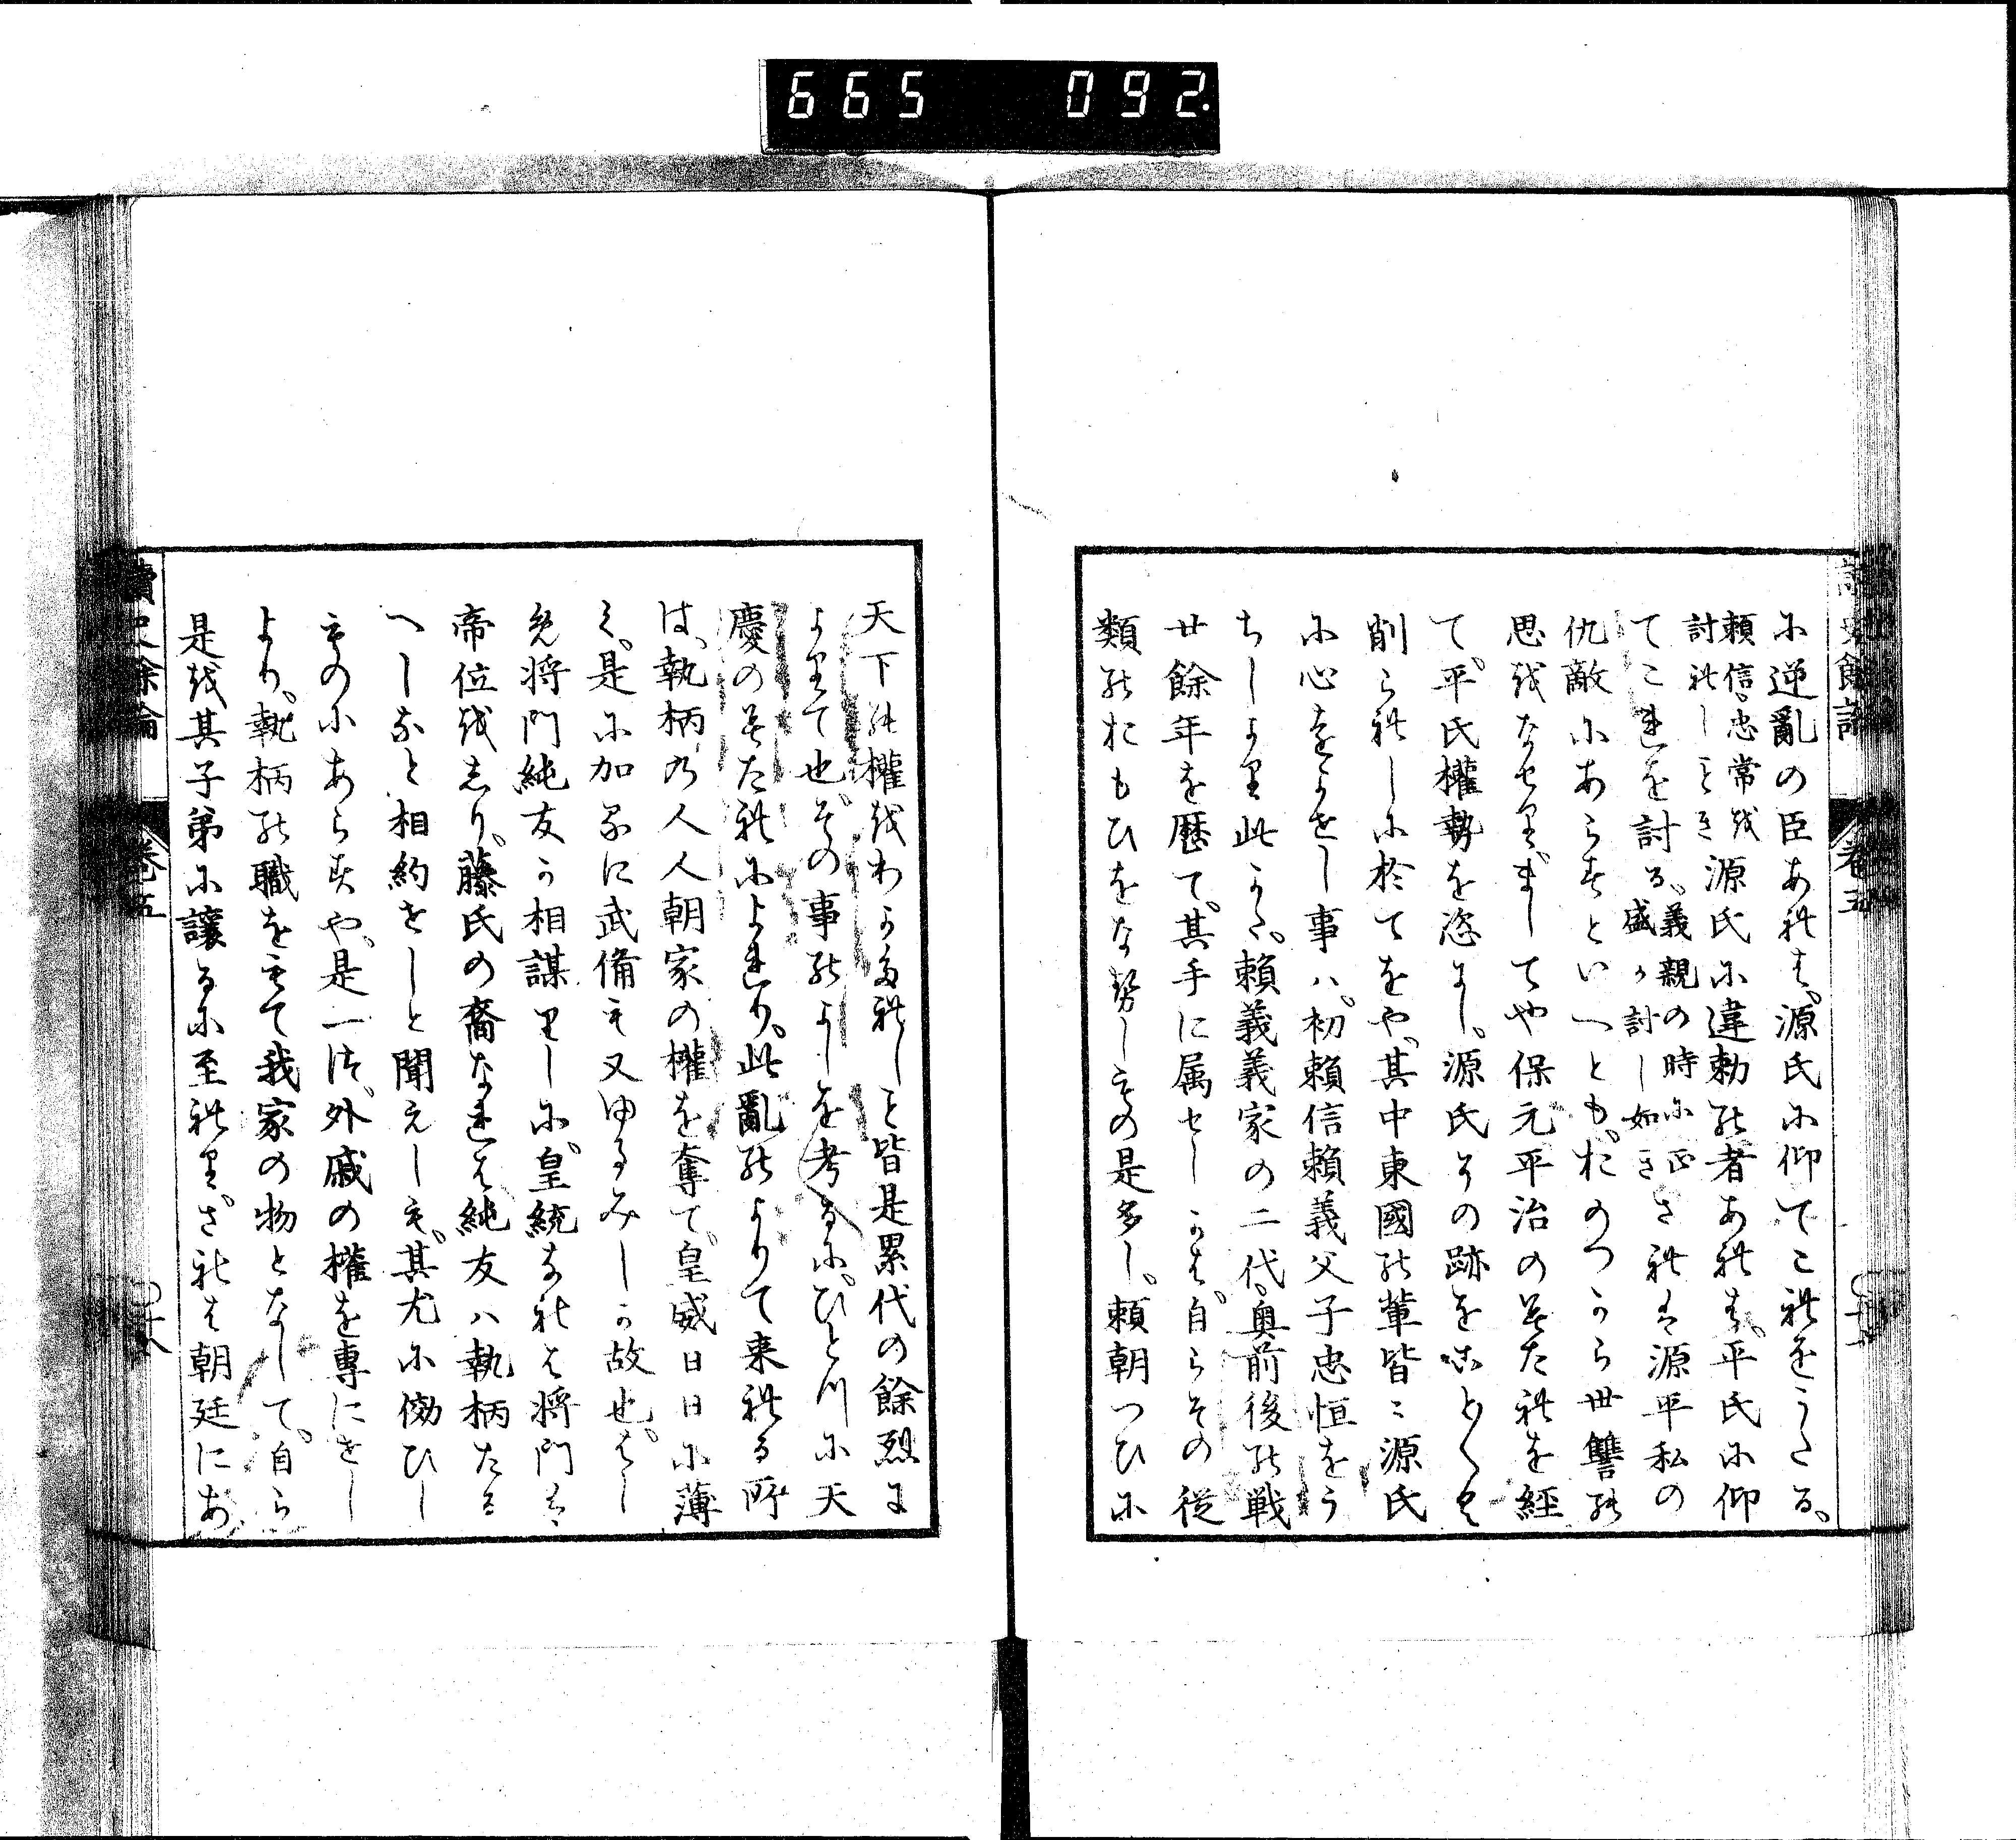 665 092.
讀史餘論 卷五
に逆亂の臣あれは、源氏に仰てこれをうたる、
頼信、忠常を
討れしとき
源氏に違勅の者あれは、平氏に仰
てこれを討る、
義親の時に正
盛か討し如き
されは源平私の
仇敵にあらすといへとも、おのつから世讐の
思をなせり、ましてや保元平治のみたれを経
て、平氏權勢を恣にし、源氏その跡をことく
削られしに於てをや、其中東國の輩皆〻源氏
に心をよせし事ハ、初頼信頼義父子忠恒をう
ちしより此かた、頼義義家の二代、奥前後の戦
廿餘年を歴て、其手に属せしかは、自らその從
類のおもひをなせしもの是多し、頼朝つひに
天下の權をわかたれしも皆是累代の餘烈に
よりて也、その事のよしを考るに、ひとつに天
慶のみたれによれり、此亂のよりて来れる所
は、執柄の人人朝家の權を奪て、皇威日日に薄
く、是に加るに武備も又ゆるみしか故也、はし
め将門純友か相謀りしに、皇統なれは将門は
帝位をしり、藤氏の裔なれは純友ハ執柄たる
へしなと相約せしと聞えしも、其尤に傚ひし
ものにあらすや、是一つ、外戚の權を專にせし
より、執柄の職をもて我家の物となして、自ら
是を其子弟に讓るに至れり、されは朝廷にあ
讀史餘論 卷五